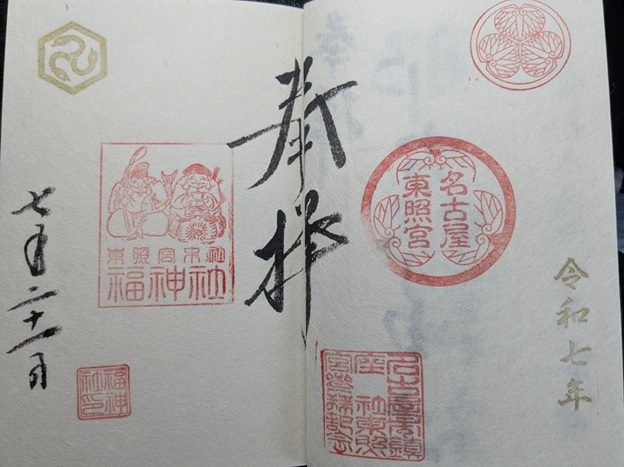 令和七年
名古屋
東照宮
奉拝
東照宮末社
福神社
七月二十一日
福神
社印